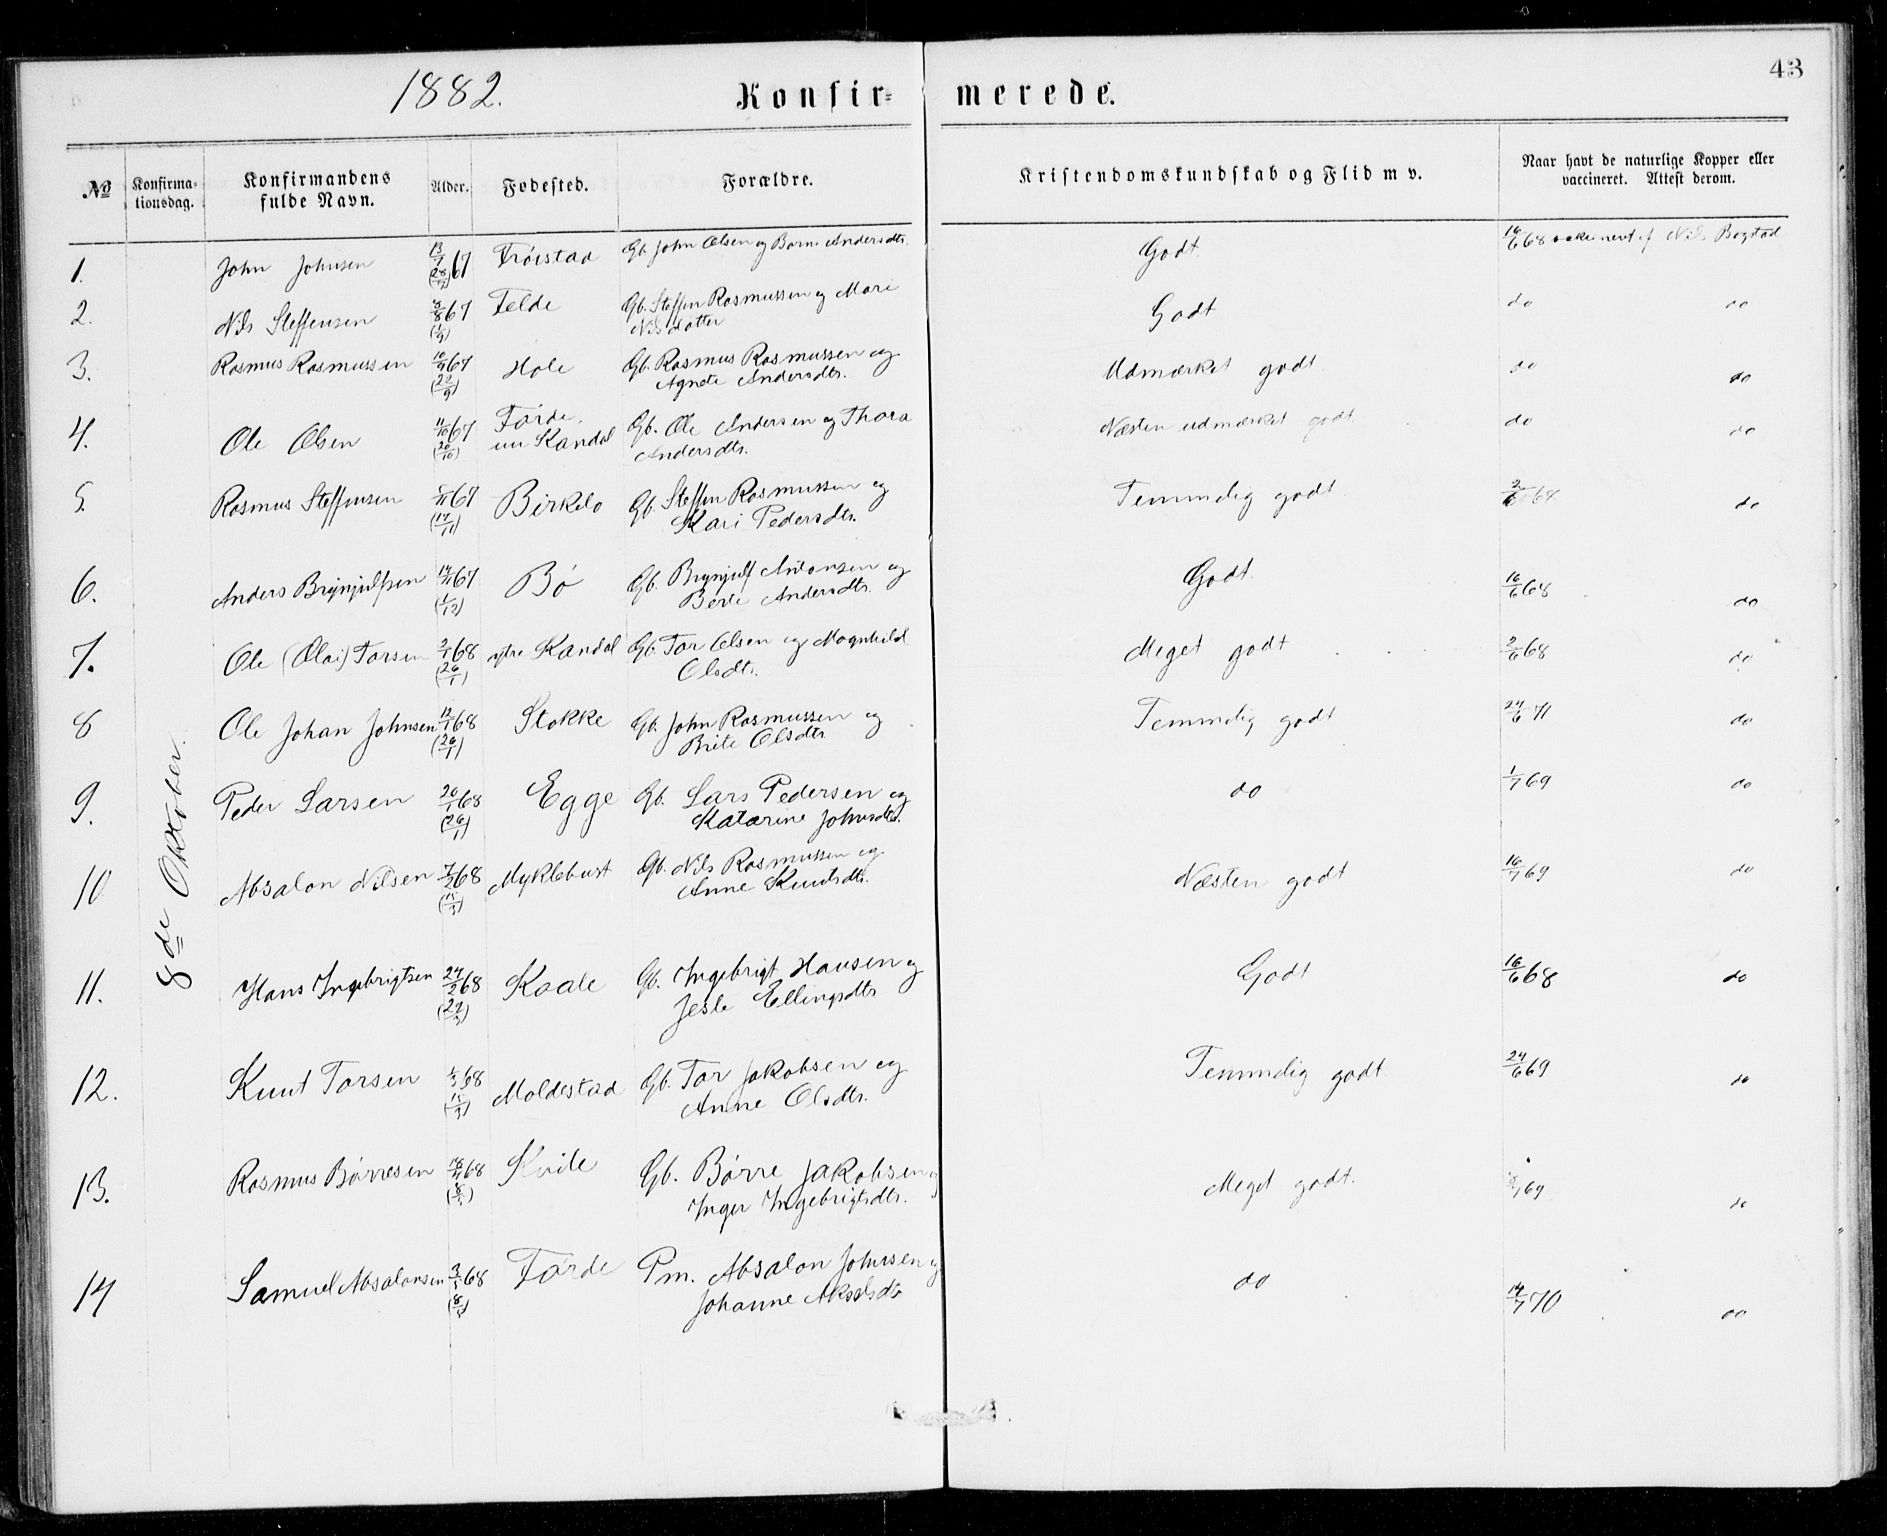 43
1882. Konfir- merede.
No Konfirma-tionsdag. Konfirmandens fulde Navn. Alder. Fødested. Forældre. Kristendomskundskab og Flid m v. Naar havt de naturlige Kopper eller vaccineret. Attest derom.
8de Oktober.
1. John Johnsen 13/7 67 Frøistad Gb. John Olsen og Andersdtr. Godt. 16/6 68 vakcineret af Nils Bogstad
2. Nils Steffensen 8/8 67 (1/9) Felde Gb. Steffen Rasmussen og Mari
Nilsdatter Godt do do
3. Rasmus Rasmussen 67 (22/9) Hole Gb. Rasmus Rasmussen og
Agnete Andersdtr. Udmærket godt do do
4. Ole Olsen 11/10 67 (20/10) Førde, Gb. Ole Andersen og Thora
Kandal Andersdtr. Næsten udmærket godt do do
5. Rasmus Steffensen 67 (17/11) Birkelo Gb. Steffen Rasmussen og
Kari Pedersdtr. Temmelig godt 68 do
6. Anders Brynjulfsen 14/11 67 (1/12) Bø Gb. Brynjulf Antonsen og
Berte Andersdtr. Godt. 16/6 68 do
7. Ole (Olai) Torsen 2/1 68 (26/1) ytre Kandal Gb. Tor Olsen og Magnhild
Olsdtr. Meget godt 2/6 68 do
8 Ole Johan Johnsen 12/1 68 (26/1) Stokke Gb. John Rasmussen og
Brite Olsdtr Temmelig godt 24/6 71 do
9. Peder Larsen 20/1 68 (26/1) Egge Gb. Lars Pedersen og
Katarine Johnsdtr. do 1/7 69 do
10 Absalon Nilsen 7/2 68 (15/3) Myklebust Gb. Nils Rasmussen og
Anne Knutsdtr. Næsten godt 16/7 69 do
11. Hans Ingebrigtsen 24/2 68 (22/3) Kaale Gb. Ingebrigt Hansen og
Jesle Ellingsdtr Godt 16/6 68 do
12. Knut Torsen 1/3 68 (15/3) Moldestad Gb. Tor Jakobsen og
Anne Olsdtr. Temmelig godt. 24/6 69 do
13. Rasmus Børresen 18/4 68 Kvile Gb. Børre Jakobsen og
Inger Ingebrigtsdtr. Meget godt. 69 do
14 Samuel Absalonsen 68 Førde Pm. Absalon Johnsen og
Johanne Akselsdtr do 14/7 70 do